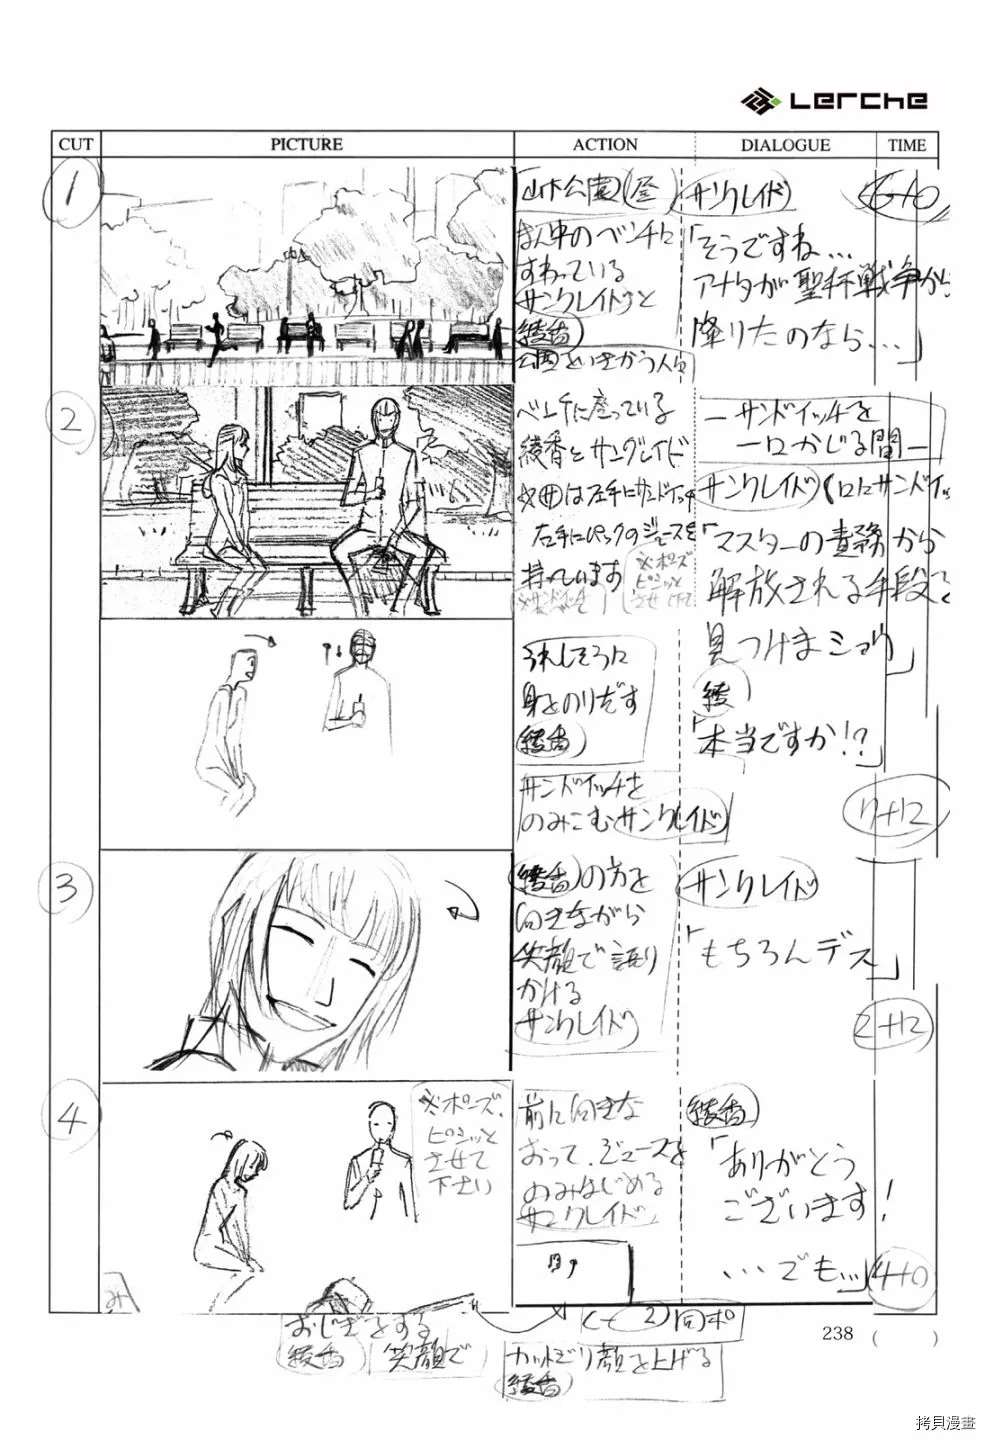 Lerche
CUT
PICTURE
ACTION
DIALOGUE
TIME
1
公園
まん中のベンチに
すわっている
サンクレイドと
綾香
公園をいきかう人々
サンクレイド
「そうですね…
アナタが聖杯戦争から
降りたのなら…」
6+0
2
ベンチに座っている
綾香とサンクレイド
左手にパックのジュースを
持っています
※ポーズ
ピシッと
させて
―サンドイッチを
一口かじる間―
サンクレイド
「マスターの責務から
解放される手段を
見つけまショウ」
綾
「本当ですか!?」
うれしそうに
身をのりだす
綾香
サンドイッチを
のみこむサンクレイド
7+12
3
綾香の方を
向きながら
笑顔で語り
かける
サンクレイド
サンクレイド
「もちろんデス」
2+12
4
※ポーズ、
ピシッと
させて
下さい
前に向きな
おって、ジュースを
のみはじめる
サンクレイド
綾香
「ありがとう
ございます!
…でも…」
4+0
(C-2)同ポ
おじぎをする
綾香
笑顔で
カットわり顔を上げる
綾香
238
( )
拷貝漫畫